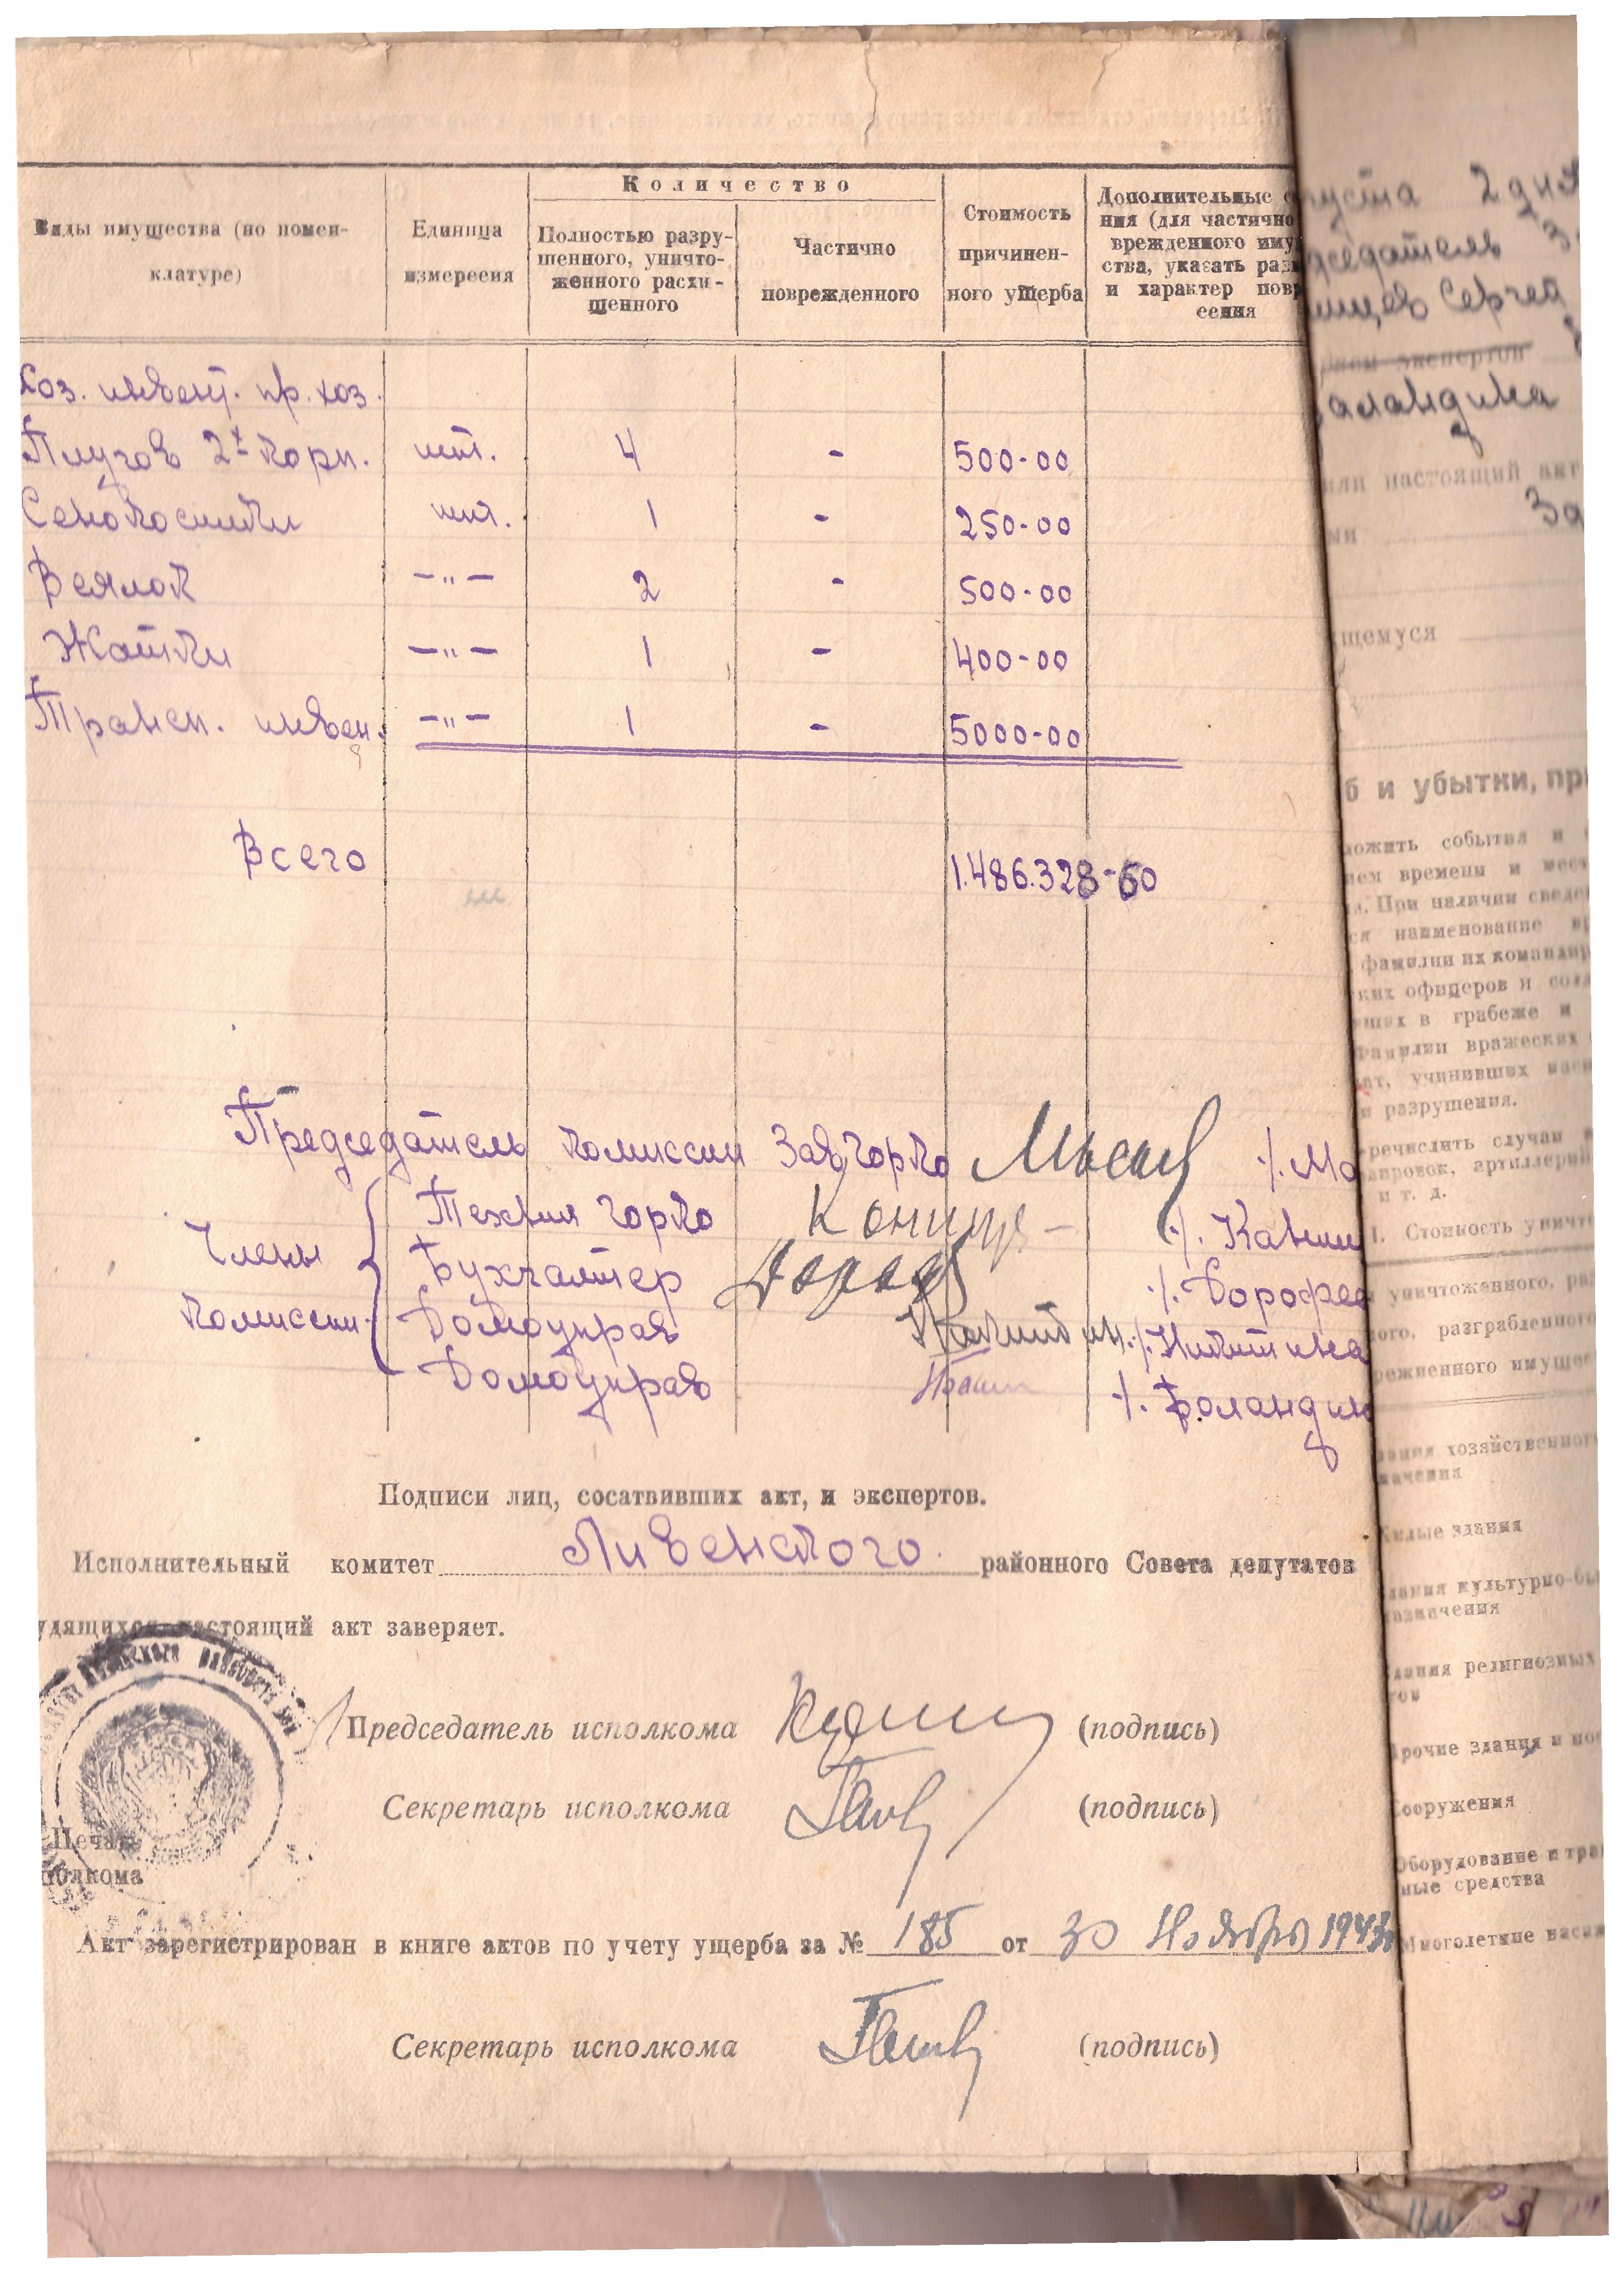 Количество
Виды имущества (по номен-
клатуре)
Единица
измереєия
Полностью разру-
шенного, уничто-
женного расхи-
щенного
Частично
поврежденного
Стоимость
причинен-
ного ущерба
Дополнительные с
ния (для частично
врежденного иму
ства, указать разм
и характер повр
сения
Хоз. инвент. пр. хоз.
Плугов 2х корп. шт. 4 - 500-00
Сенокосилки шт. 1 - 250-00
Веялок -"- 2 - 500-00
Жатки -"- 1 - 400-00
Трансп. инвен. -"- 1 - 5000-00
Всего 1.486.328-60
Председатель комиссии Зав.горко
Члены
комиссии
Техник горко
Бухгалтер /. Дорофее
Домоуправ /. Никитина
Домоуправ /. Баландин
Подписи лиц, сосатвивших акт, и экспертов.
Исполнительный комитет Ливенского районного Совета депутатов
удящихся настоящий акт заверяет.
Председатель исполкома (подпись)
Секретарь исполкома (подпись)
Печать
олкома
Акт зарегистрирован в книге актов по учету ущерба за № 185 от 30 Ноября 1943г
Секретарь исполкома (подпись)
густа 2 дня
дседатель З
нцев Сергей
рием экспертов
аландина
или настоящий акт
ми За
щемуся
б и убытки, при
ложить события и
ием времени и мест
. При наличии сведе
ся наименование в
фамилии их командир
ких офицеров и солд
вших в грабеже и
Фамилии вражеских
ат, учинивших наси
и разрушения.
речислить случаи
ировок, артиллерий
и т. д.
1. Стоимость уничт
уничтоженного, раз
ого, разграбленного
режденного имущес
ания хозяйственного
начения
Жилые здания
дания культурно-бы
азначения
дания религиозных
тов
рочие здания и по
ооружения
Оборудование и тран
ные средства
Многолетние насаж